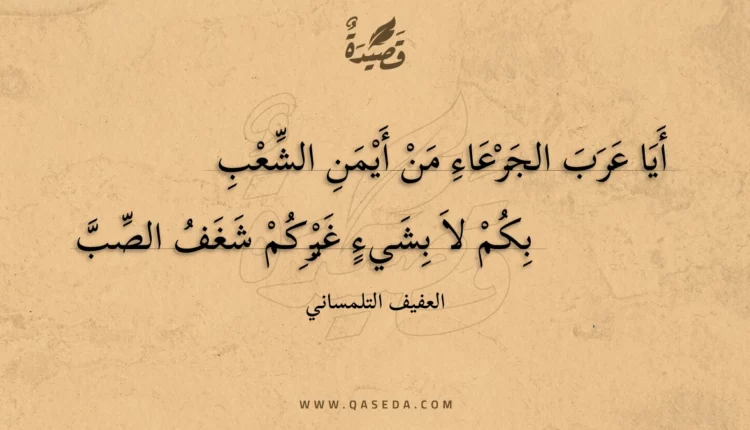 قَصِيدَةٌ
أَيَا عَرَبَ الجَرْعَاءِ مَنْ أَيْمَنِ الشِّعْبِ
بِكُمْ لاَ بِشَيءٍ غَيْرِكُمْ شَغَفُ الصِّبَّ
العفيف التلمساني
WWW.QASEDA.COM